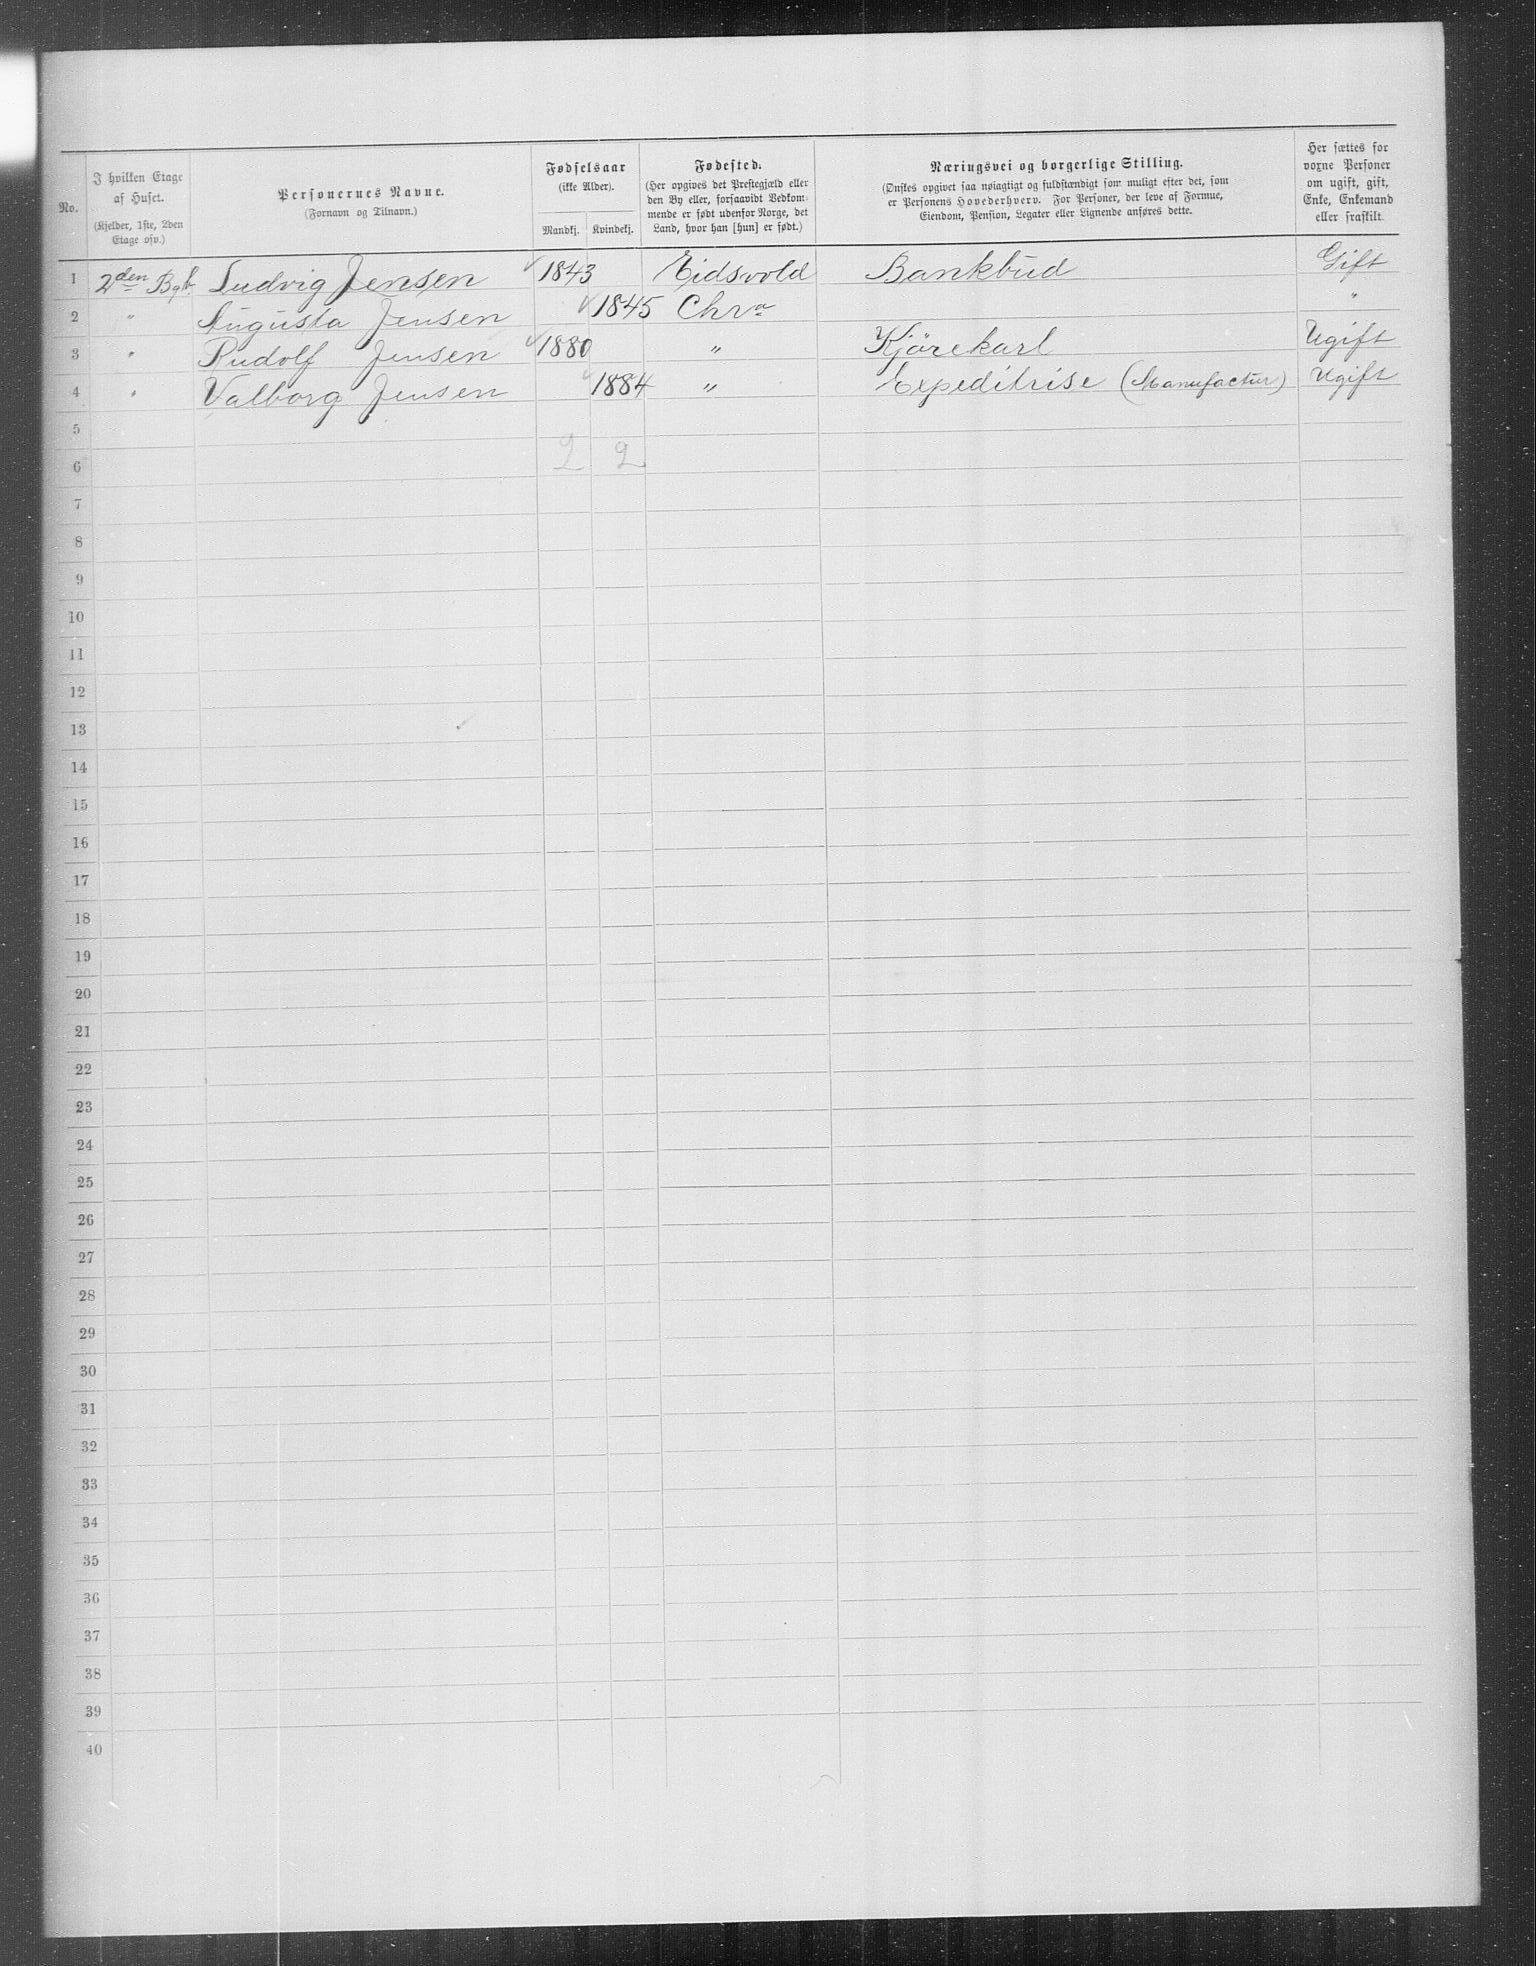 No.
I hvilken Etage af Huset.
(Kjelder, 1ste, 2den Etage osv.)
Personernes Navne.
(Fornavn og Tilnavn.)
Fødselsaar
(ikke Alder).
Mandkj. Kvindekj.
Fødested.
(Her opgives det Prestegjæld eller den By eller, forsaavidt Vedkommende er født udenfor Norge, det Land, hvor han [hun] er født.)
Næringsvei og borgerlige Stilling.
(Ønskes opgivet saa nøiagtigt og fuldstændigt som muligt efter det, som er Personens Hovederhverv. For Personer, der leve af Formue, Eiendom, Pension, Legater eller Lignende anføres dette.
Her sættes for voxne Personer om ugift, gift, Enke, Enkemand eller fraskilt.
1 2den Bgk. Ludvig Jensen 1843 Eidsvold Bankbud Gift
2 " Augusta Jensen 1845 Chra "
3 " Rudolf Jensen 1880 " Kjörekarl Ugift
4 " Valborg Jensen 1884 " Expeditrise (Manufactur) Ugift
5
6 2 2
7
8
9
10
11
12
13
14
15
16
17
18
19
20
21
22
23
24
25
26
27
28
29
30
31
32
33
34
35
36
37
38
39
40